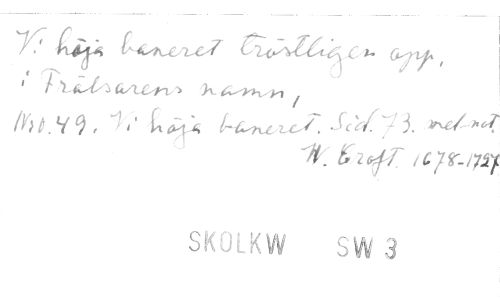 Vi höja baneret tröstligen opp,
i Frälsarens namn,
Nro. 49. Vi höja baneret. Sid. 73. med not
W. Croft. 1678-1727
SKOLKW SW 3